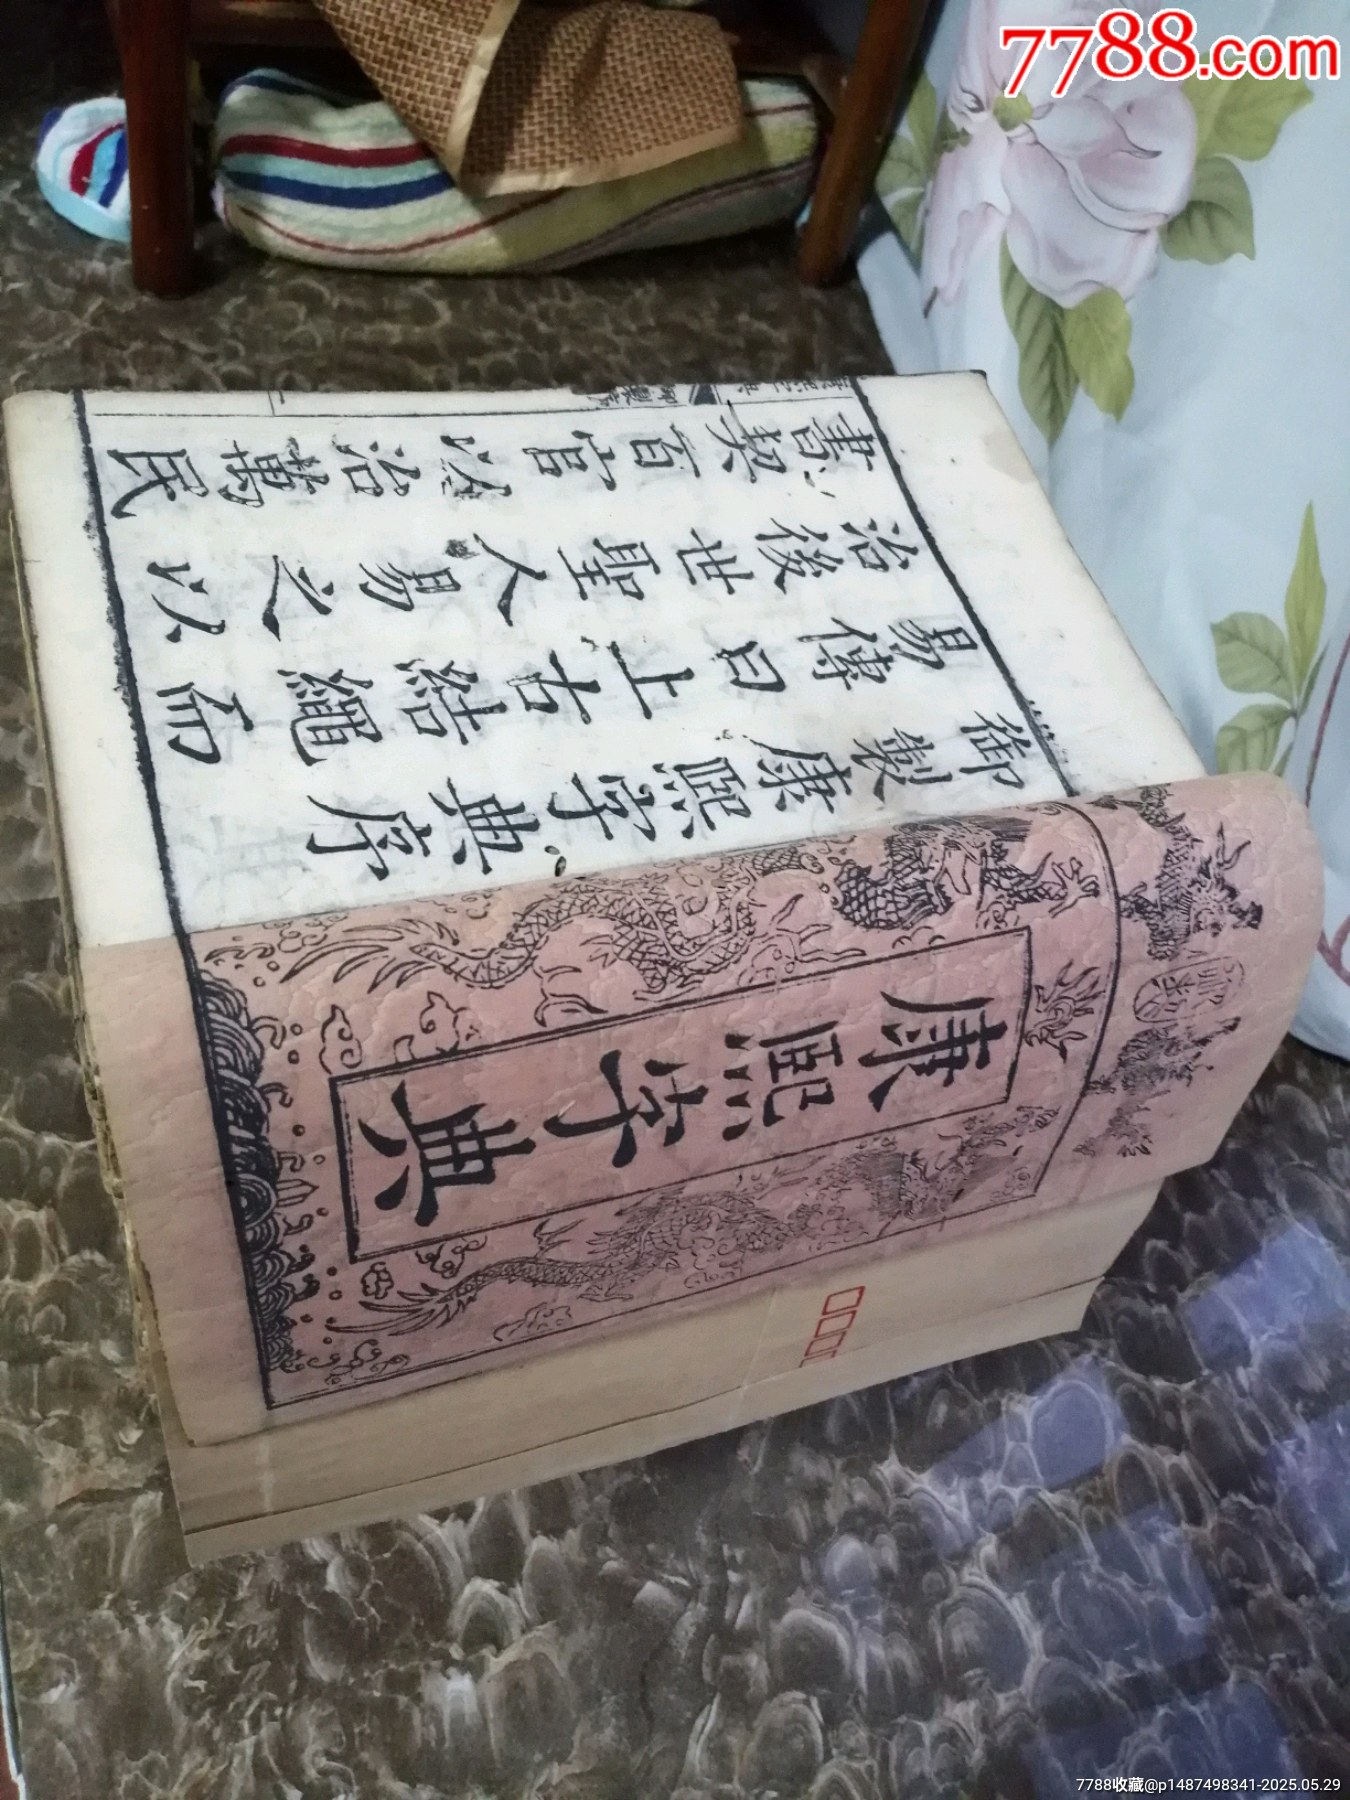 7788.com
御製
康熙字典
御製康熙字典序
易傳曰上古結繩而
治後世聖人易之以
書契百官以治萬民
7788收藏@p1487498341-2025.05.29